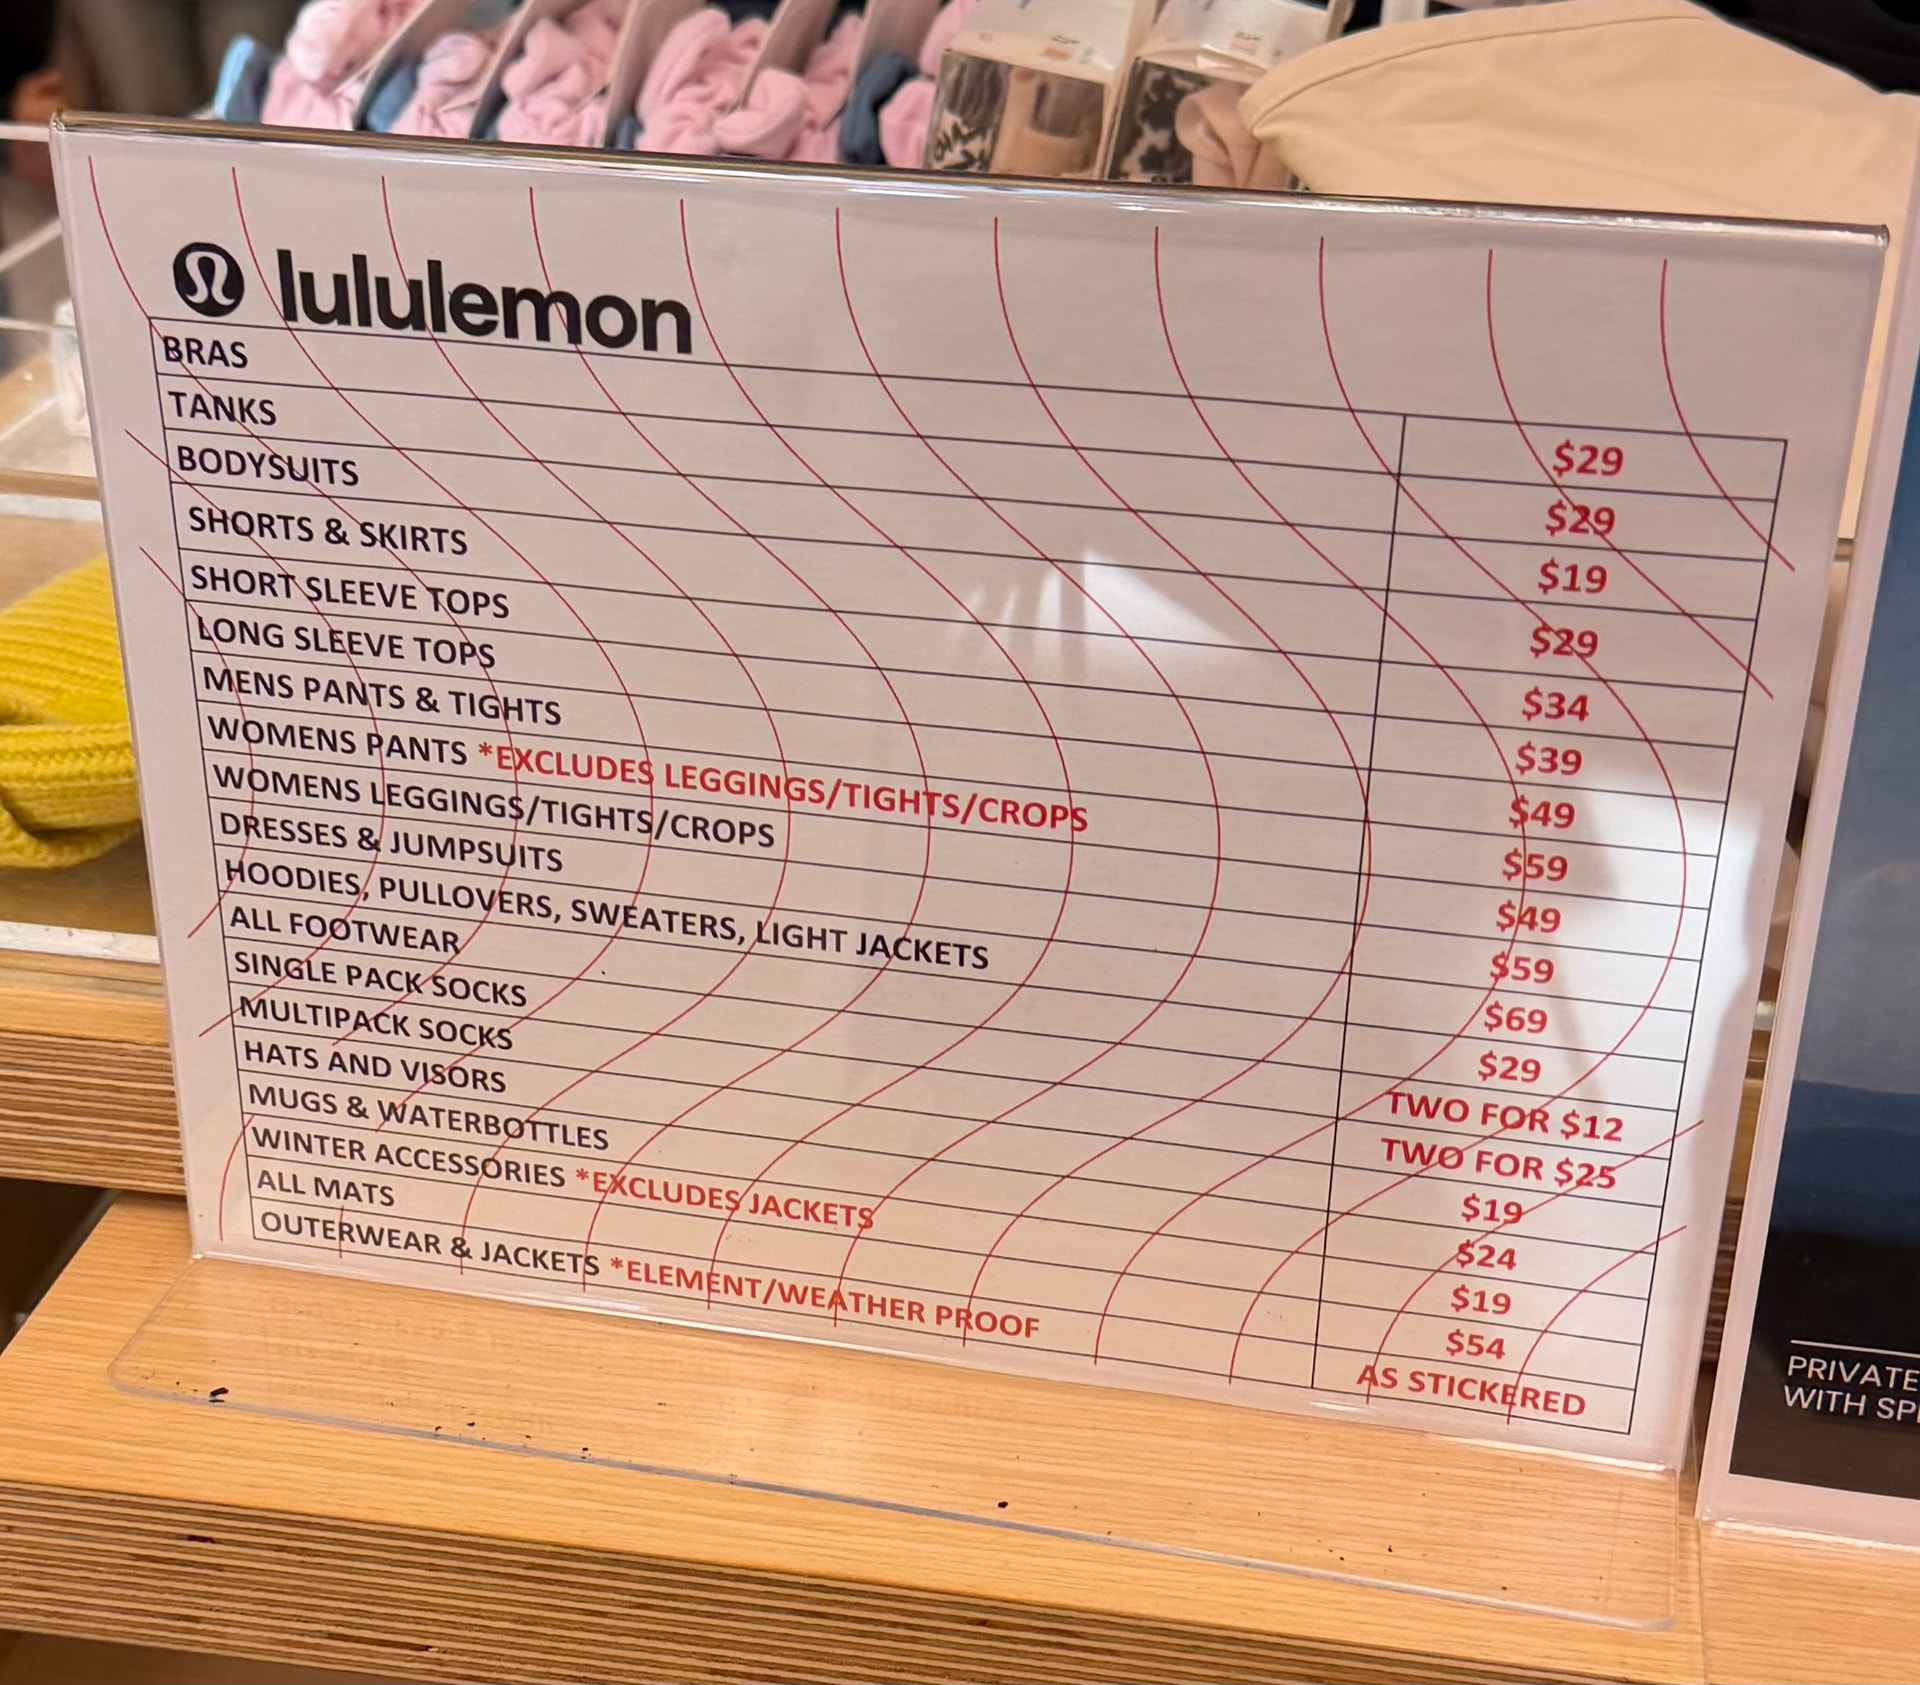 lululemon
BRAS $29
TANKS $29
BODYSUITS $19
SHORTS & SKIRTS $29
SHORT SLEEVE TOPS $34
LONG SLEEVE TOPS $39
MENS PANTS & TIGHTS $49
WOMENS PANTS *EXCLUDES LEGGINGS/TIGHTS/CROPS $59
WOMENS LEGGINGS/TIGHTS/CROPS $49
DRESSES & JUMPSUITS $59
HOODIES, PULLOVERS, SWEATERS, LIGHT JACKETS $69
ALL FOOTWEAR $29
SINGLE PACK SOCKS TWO FOR $12
MULTIPACK SOCKS TWO FOR $25
HATS AND VISORS $19
MUGS & WATERBOTTLES $24
WINTER ACCESSORIES *EXCLUDES JACKETS $19
ALL MATS $54
OUTERWEAR & JACKETS *ELEMENT/WEATHER PROOF AS STICKERED
PRIVATE
WITH